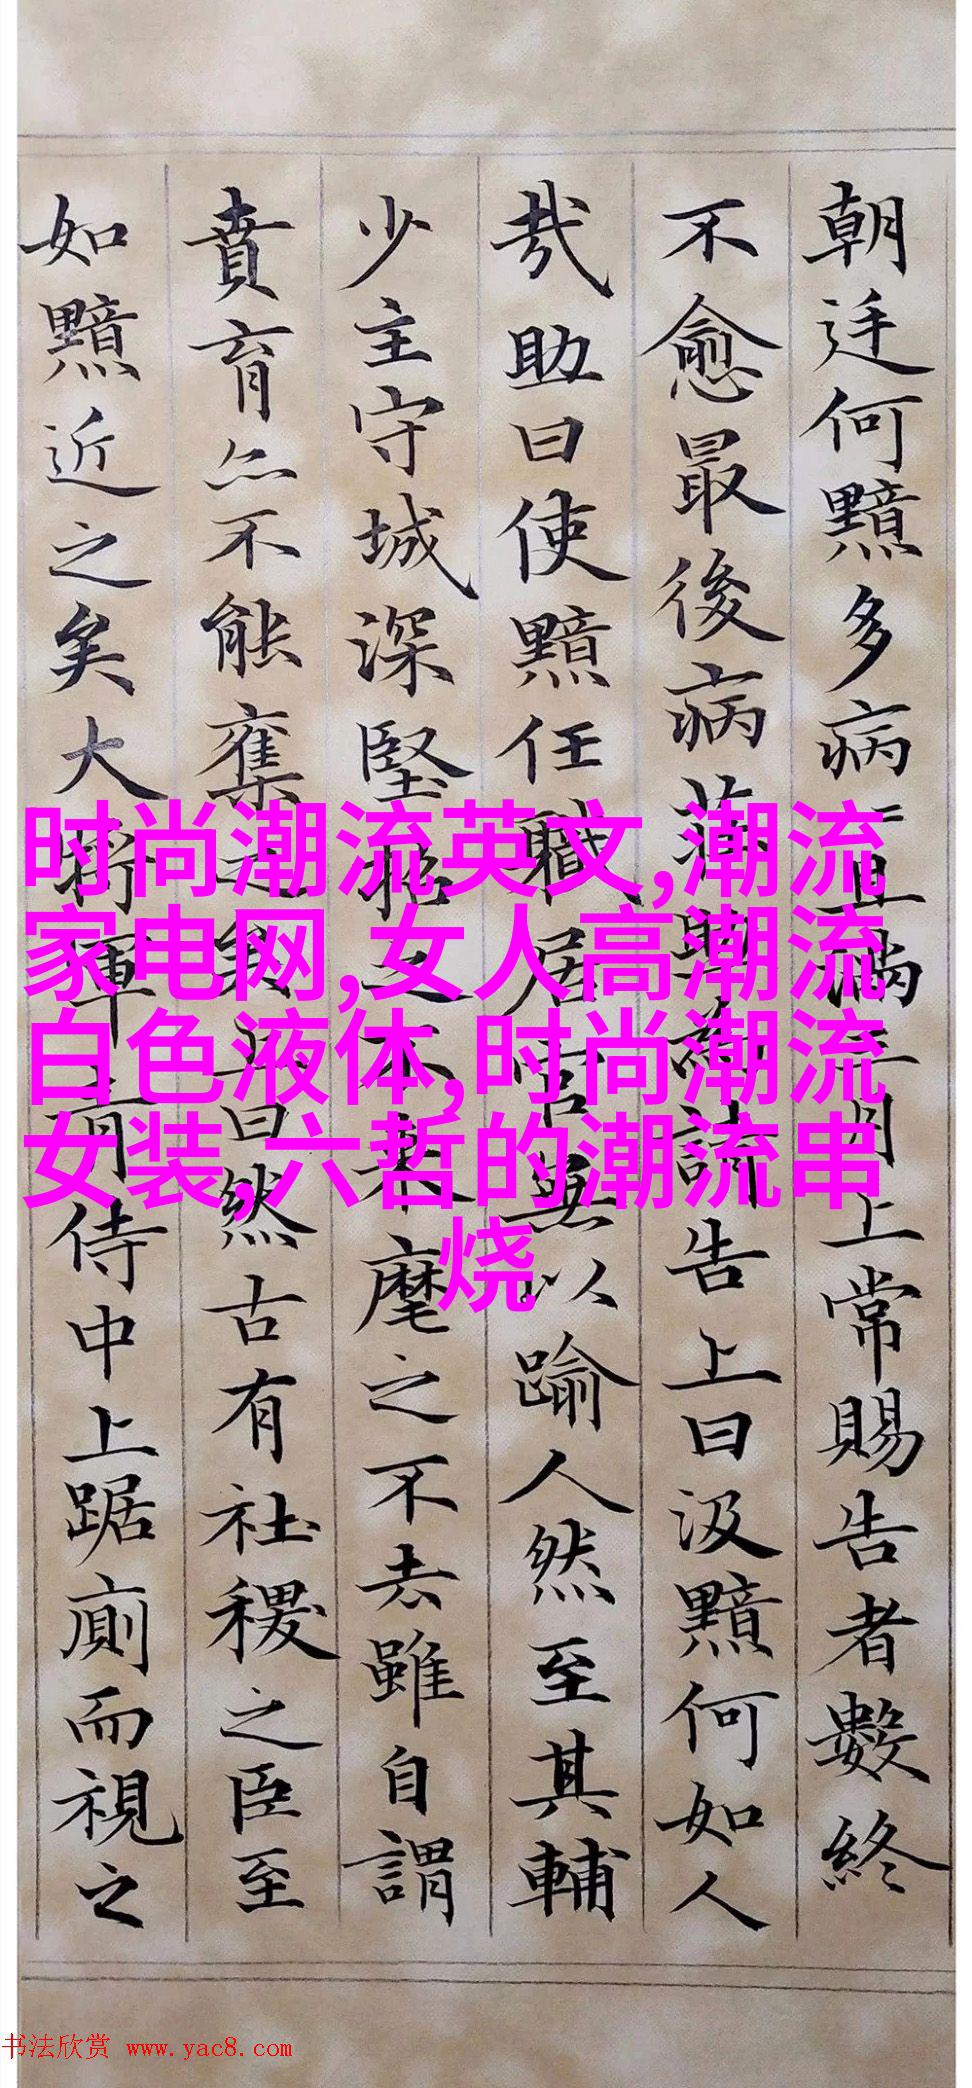 朝廷何黯多病
上常賜告者數終
不愈最後病
告上曰汲黯何如人
哉助曰使黯任職居官無以踰人然至其輔
少主守城深堅招之不來麾之不去雖自謂
賁育亦不能奪之矣上曰然古有社稷之臣至
如黯近之矣大將軍青侍中上踞廁而視之
时尚潮流英文,潮流
家电网,女人高潮流
白色液体,时尚潮流
女装,六哲的潮流串
烧
书法欣赏 www.yac8.com